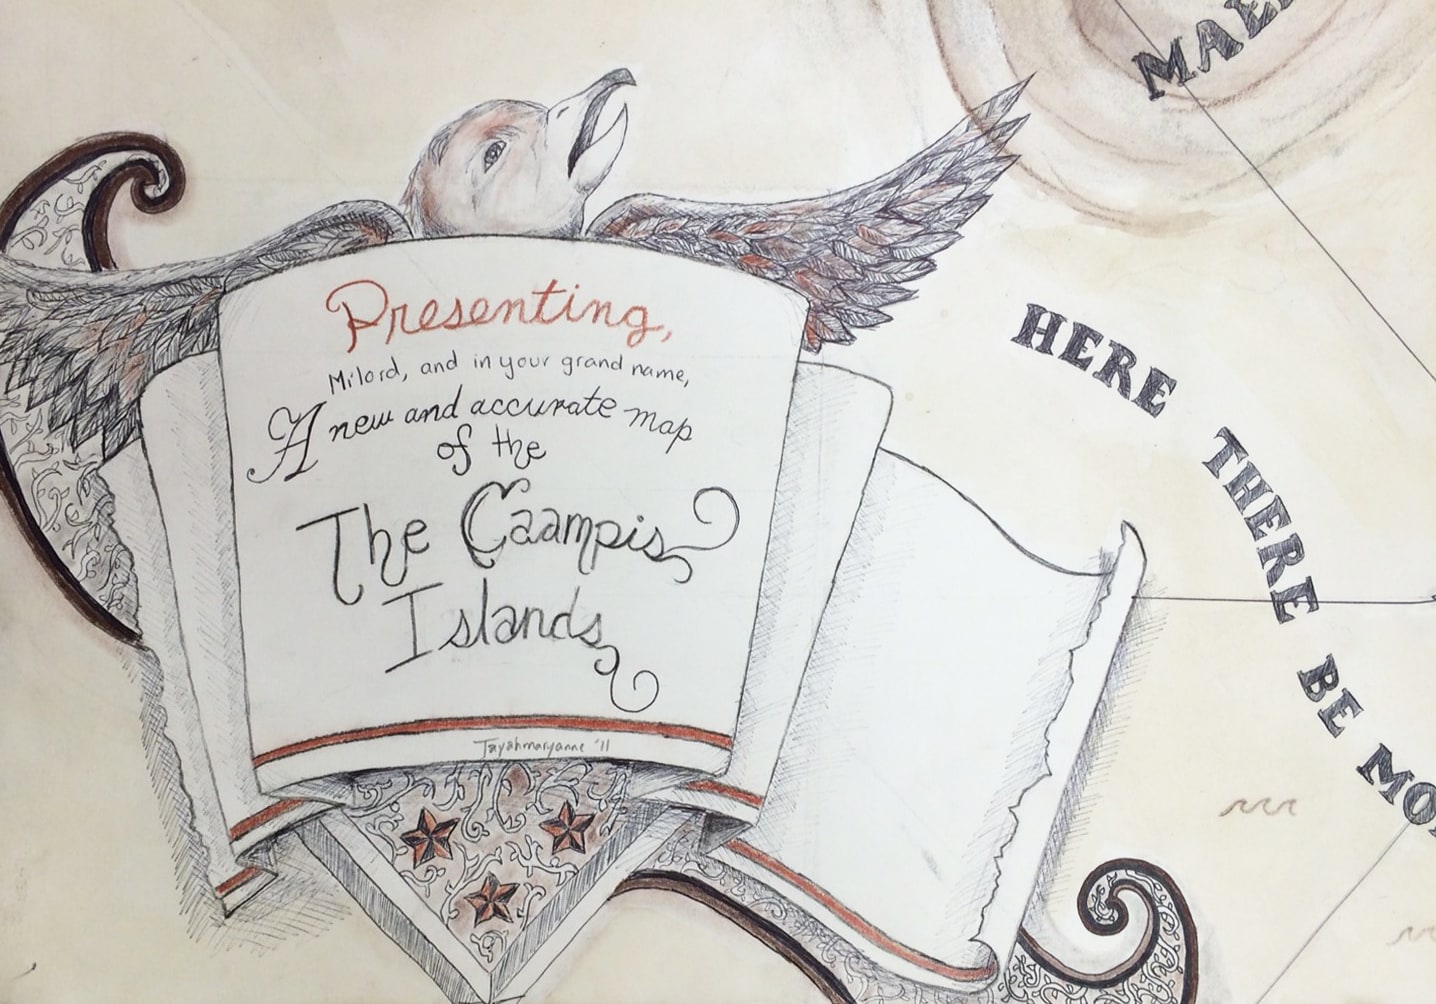 Presenting,
Milord, and in your grand name,
A new and accurate map
of the
The Caampis
Islands
Tayahmaryanne '11
HERE THERE BE